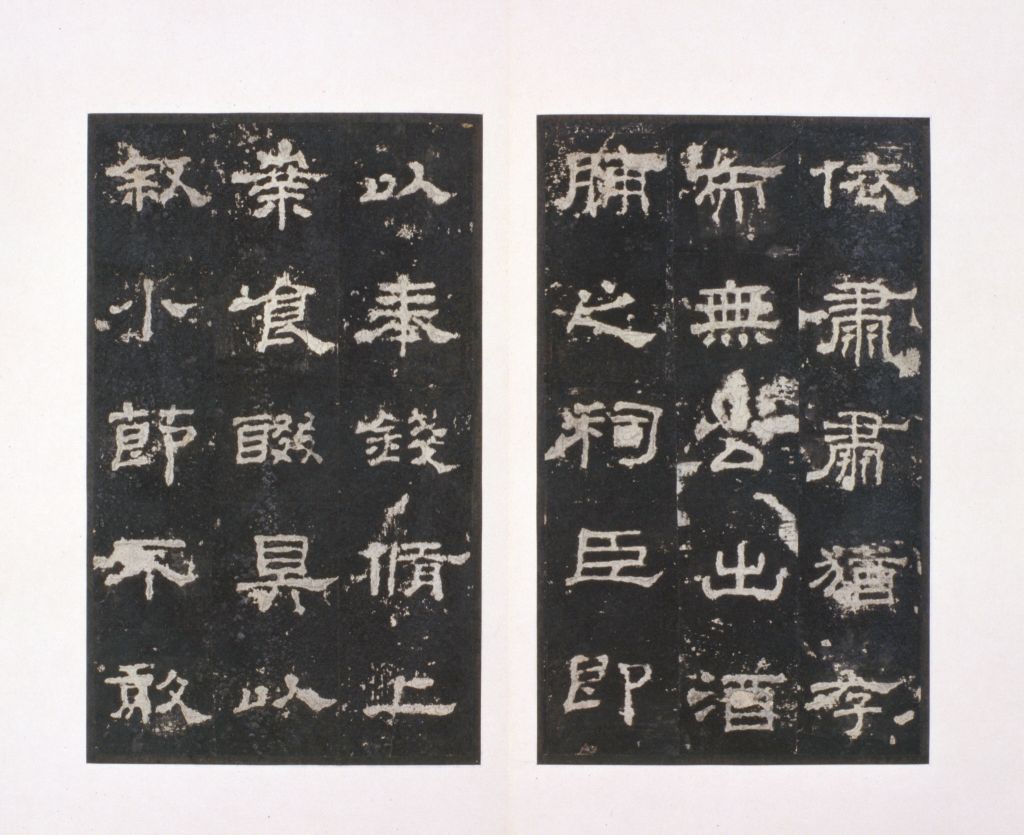 依肅肅猶存
而無公出酒
脯之祠臣即
以奉錢脩上
案食醊具以
叙小節不敢